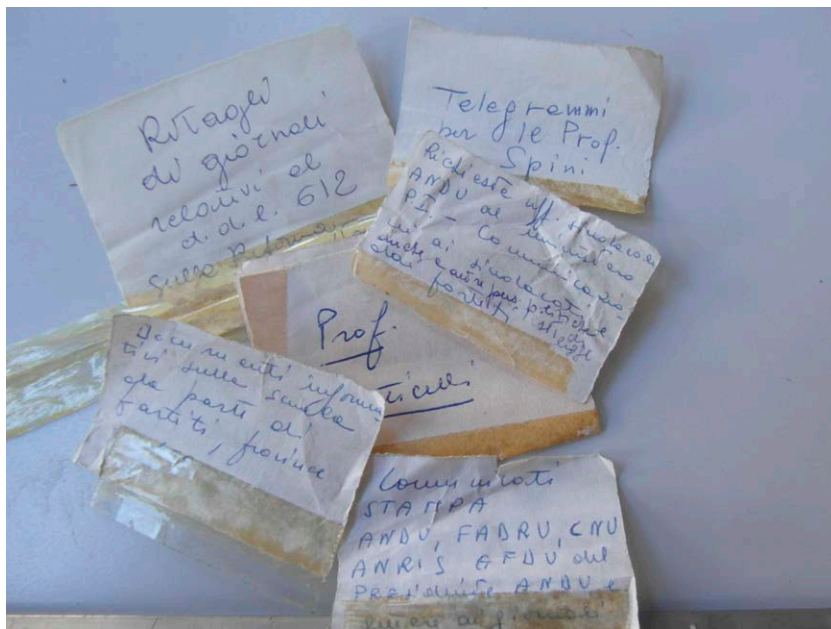 Ritagli
di giornali
relativi al
d.d.l. 612
sulla Riforma
Telegrammi
per le Prof.
Spini
Richieste uff. sindacati
ANDU al Ministero
P.I. - Comunicazio
ni ai sindacati
anche
dai partiti
Prof.
ticelli
Documenti informa
tivi sulla scuola
da parte di
partiti, province
Comunicati
STAMPA
ANDU, FADRU, CNU
ANRIS EFDU del
PRESIDENTE ANDU e